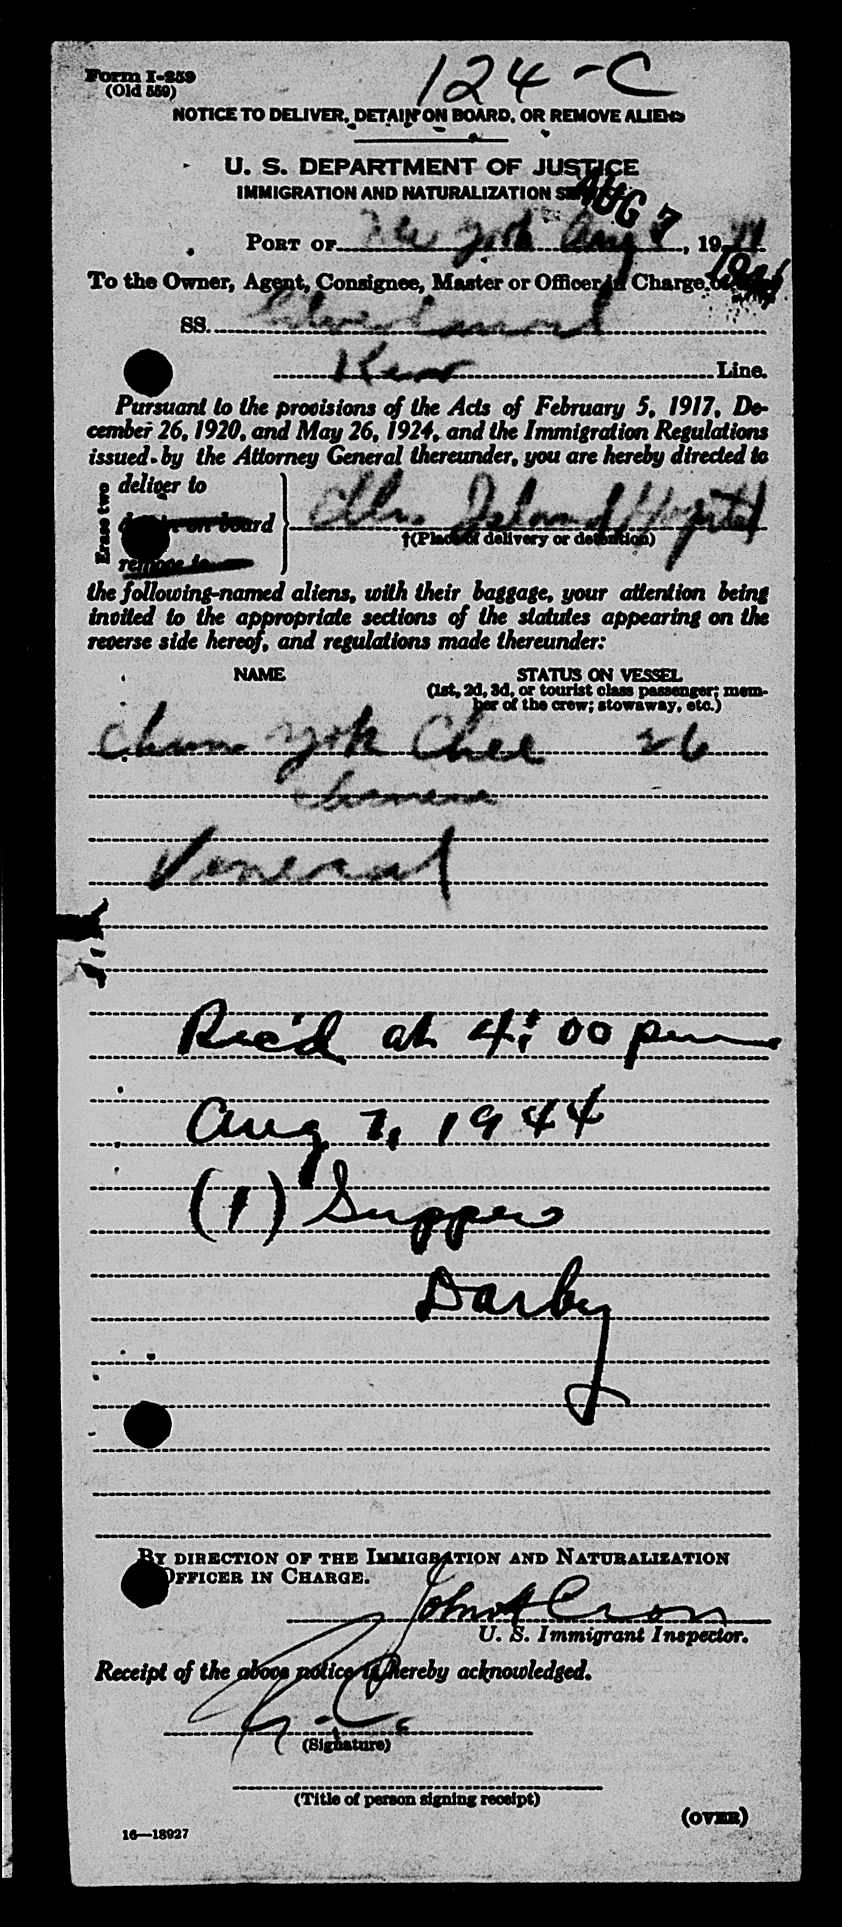 124-C
Form I-259
(Old 559)
NOTICE TO DELIVER, DETAIN ON BOARD, OR REMOVE ALIENS
U. S. DEPARTMENT OF JUSTICE
IMMIGRATION AND NATURALIZATION
AUG 7
PORT OF New York Aug, 1944
To the Owner, Agent, Consignee, Master or Officer in Charge of
SS.
Line.
Pursuant to the provisions of the Acts of February 5, 1917, De-
cember 26, 1920, and May 26, 1924, and the Immigration Regulations
issued by the Attorney General thereunder, you are hereby directed to
Erase two
deliver to
detain on board
remove to
Ellis Island Hospital
†(Place of delivery or detention)
the following-named aliens, with their baggage, your attention being
invited to the appropriate sections of the statutes appearing on the
reverse side hereof, and regulations made thereunder:
NAME STATUS ON VESSEL
(1st, 2d, 3d, or tourist class passenger; mem-
ber of the crew; stowaway, etc.)
Chan Yok Chee 26
Veneral
Rec'd at 4:00 pm
Aug 7, 1944
(1) Supper
Darby
BY DIRECTION OF THE IMMIGRATION AND NATURALIZATION
OFFICER IN CHARGE.
John
U. S. Immigrant Inspector.
Receipt of the above notice is hereby acknowledged.
(Signature)
(Title of person signing receipt)
(OVER)
16—18927